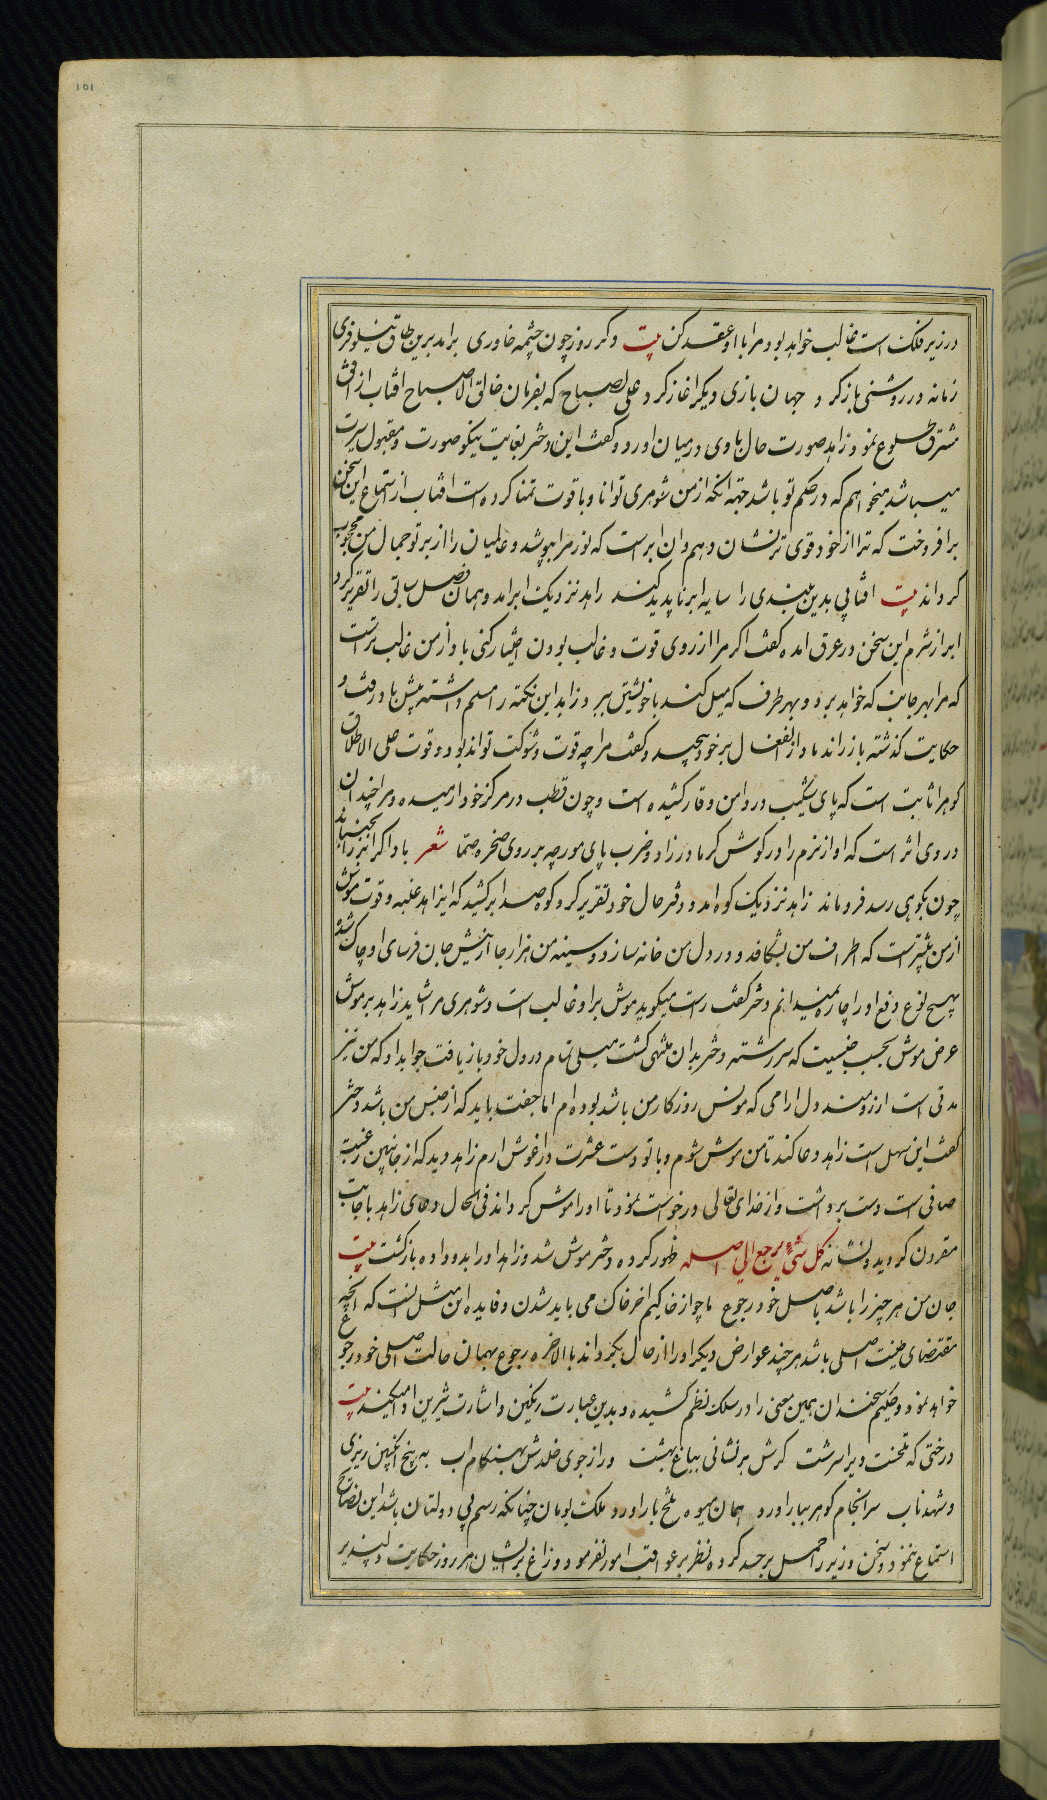 در زیر فلک است غالب خواهد بود مرا با او عقد کن بیت دکر روز چون چشمه خاوری برامد برین طاق نیلوفری
زمانه در روشنی باز کرد جهان بازی دیکر اغاز کرد علی الصباح که بفرمان خالق الاصباح افتاب از افق
مشرق طلوع نمود زاهد صورت حال با وی در میان اورد و کفت این دختر بغایت نیکو صورت و مقبول سیرت
میباشد میخواهم که در حکم تو باشد جهه انکه از من شوهری توانا و با قوت تمنا کرده است افتاب از استماع این سخن
برافروخت که ترا از خود قوی تر نشان دهم و ان ابر است که نور مرا بپوشد و عالمیان را از پرتو جمال من محجوب
کرداند بیت افتابی بدین بلندی را سایه ابر ناپدید کند زاهد نزدیک ابر امد و همان فصل سابق را تقریر کرد
ابر از شرم این سخن در عرق امده کفت اکر مرا از روی قوت و غالب بودن اختیار کنی باد از من غالب ترست
که مرا بهر جانب که خواهد برد و بهر طرف که میل کند با خویشتن ببرد زاهد این نکته را مسلم داشته پیش باد رفت و
حکایت کذشته باز راند باد از انفعال بر خود پیچید و کفت مرا چه قوت و شوکت تواند بود و قوت علی الاطلاق
کوه را ثابت است که پای شکیب در دامن وقار کشیده است و چون قطب در مرکز خود ارمیده و مرا چندان
در وی اثر است که اواز نرم را در کوش کر مادرزاد و ضرب پای مورچه بر روی صخره صما شعر باد اکر ابر را بجنباند
چون بکوهی رسد فرو ماند زاهد نزدیک کوه امد و دفتر حال خود تقریر کرد کوه صدا برکشید که ای زاهد غلبه و قوت موش
از من بیشترست که اطراف من بشکافد و در دل من خانه سازد و سینه من هزار جا از نیش جان فرسای او چاک شده
بهیچ نوع دفع او را چاره نمیدانم دختر کفت راست میکوید موش بر او غالب است و شوهری مرا شاید زاهد بر موش
عرض موش بحسب جنسیت که سررشته دختر بدان منتهی کشت میلی تمام در دل خود باز یافت جواب داد که من نیز
مدتی است ارزومند دل ارامی که مونس روزکار من باشد بوده ام اما جفت باید که از جنس من باشد دختر
کفت این سهل است زاهد دعا کند تا من موش شوم و با تو دست عشرت در اغوش ارم زاهد دید که از جانبین رغبت
صافی است دست برداشت و از خدای تعالی درخواست نمود تا او را موش کرداند فی الحال دعای زاهد باجابت
مقرون کردید و نشانه کل شیء یرجع الی اصله ظهور کرده دختر موش شد و زاهد او را بدو داده بازکشت بیت
جان من هر چیز را باشد باصل خود رجوع ما چو از خاکیم اخر خاک می باید شدن و فایده این مثل انست که انچه
مقتضای طینت اصلی باشد هر چند عوارض دیکر او را از حال بکرداند بالاخره رجوع بهمان حالت اصلی خود رجوع
خواهد نمود و حکیم سخندان همین معنی را در سلک نظم کشیده و بدین عبارت رنکین و اشارت شیرین ادا میکند بیت
درختی که تلخست ویرا سرشت کرش برنشانی بباغ بهشت ور از جوی خلدش بهنکام اب به بیخ انکبین ریزی
و شهد ناب سرانجام کوهر ببار اورد همان میوه تلخ بار اورد ملک بومان چنانکه رسم بی دولتان باشد این نصایح
استماع ننمود و سخن وزیر را حمل بر حسد کرده نظر بر عواقب امور نفرمود و زاغ بر ایشان هر روز حکایت دلپذیر